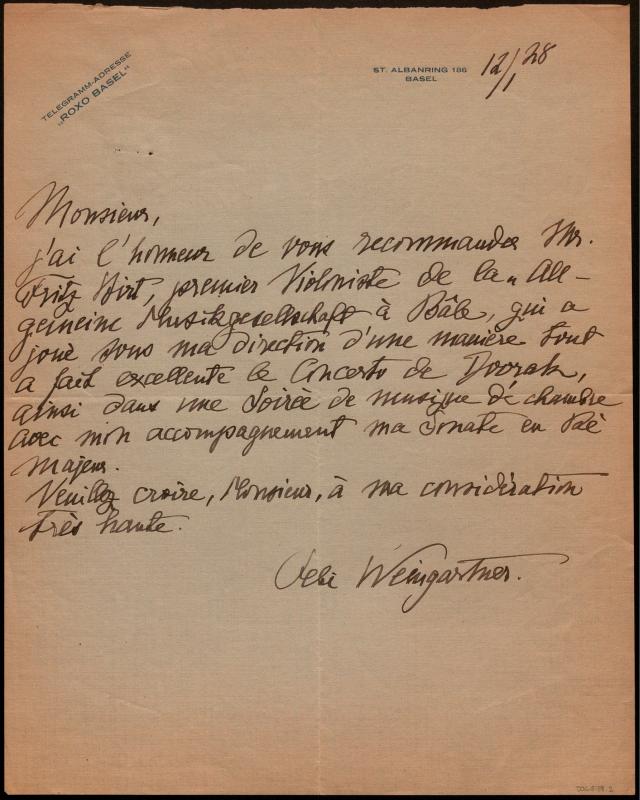 TELEGRAMM-ADRESSE
"ROXO BASEL"
ST. ALBANRING 186
BASEL
12/1 28
Monsieur,
j'ai l'honneur de vous recommander Mr.
Fritz Hirt, premier Violoniste de la „All-
gemeine Musikgesellschaft à Bâle, qui a
joué sous ma direction d'une manière tout
a fait excellente le Concerto de Dvorak,
ainsi dans une Soirée de musique de chambre
avec mon accompagnement ma Sonate en Ré
majeur.
Veuillez croire, Monsieur, à ma considération
très haute.
Felix Weingartner.